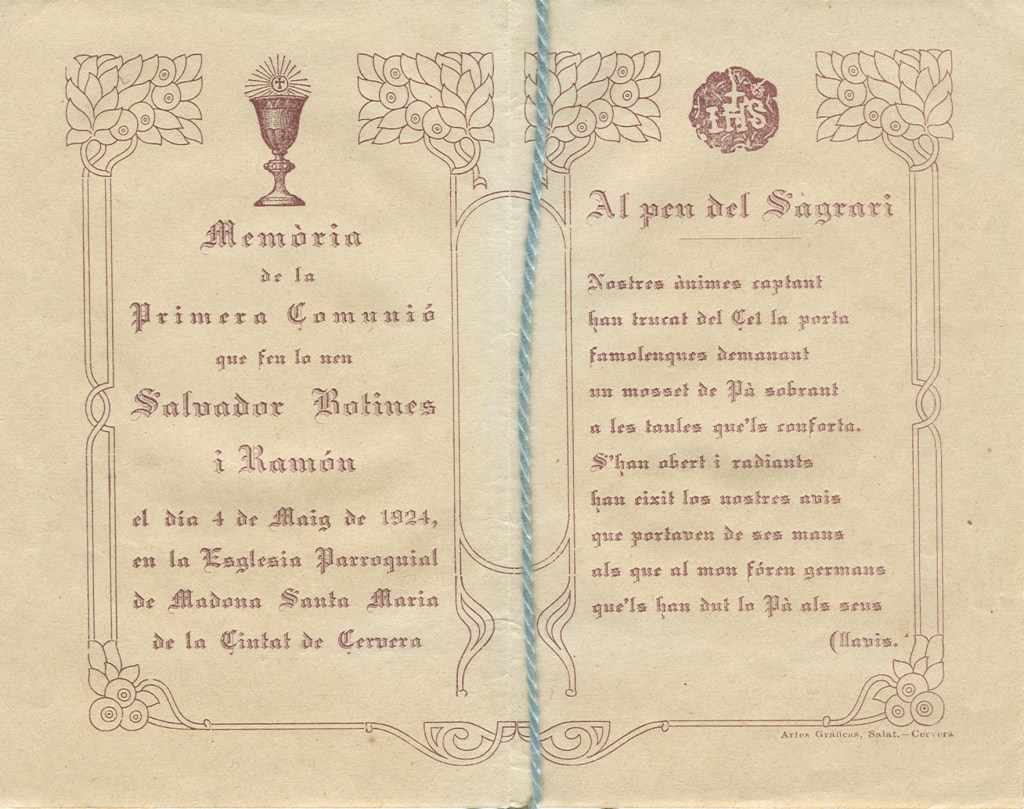 Memòria
de la
Primera Comunió
que feu lo nen
Salvador Botines
i Ramón
el día 4 de Maig de 1924,
en la Esglesia Parroquial
de Madona Santa Maria
de la Ciutat de Cervera
IHS
Al peu del Sàgrari
Nostres ànimes captant
han trucat del Cel la porta
famolenques demanant
un mosset de Pà sobrant
a les taules que'ls conforta.
S'han obert i radiants
han eixit los nostres avis
que portaven de ses mans
als que al mon fóren germans
que'ls han dut lo Pà als seus
(llavis.
Artes Gráficas, Salat.—Cervera